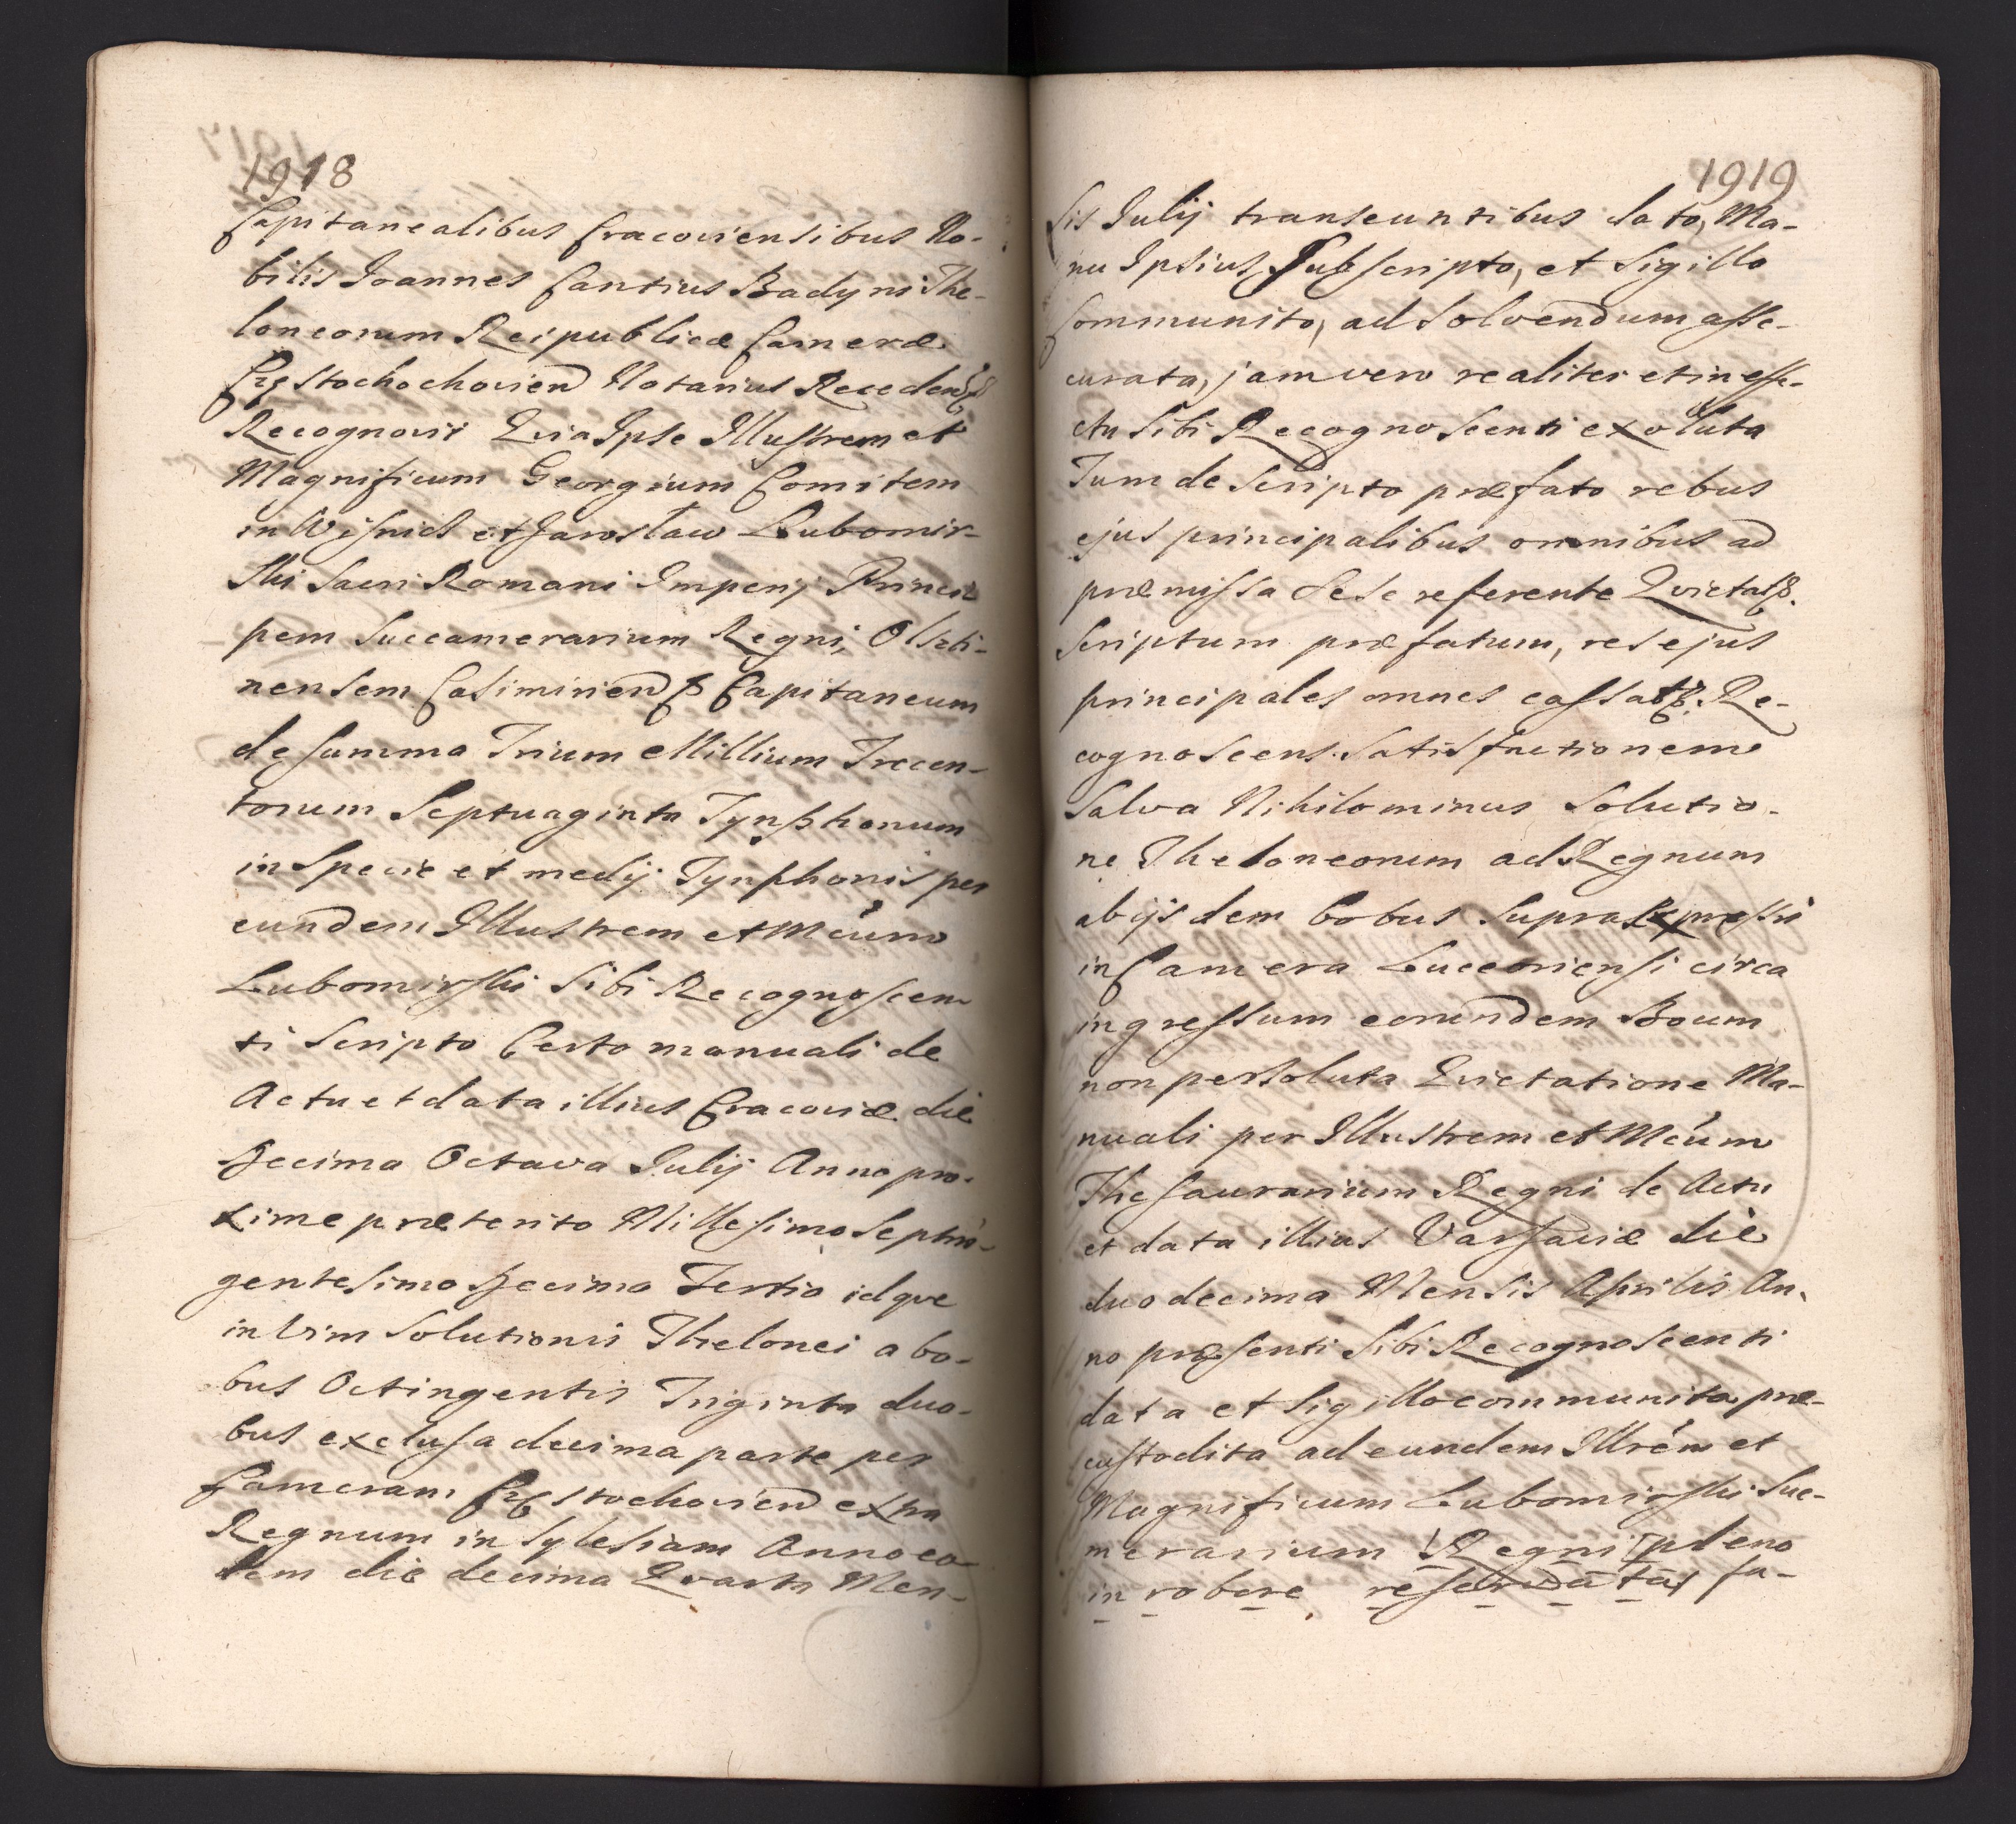 1918
Capitanealibus Cracoviensibus No-
bilis Joannes Cantius Badyni The-
loneorum Reipublicæ Cameræ
Częstochochovien Notarius Receden
Recognovit Quia Ipse Illustrem et
Magnificum Georgium Comitem
in Wisnicz et Jarosław Lubomir-
ski Sacri Romani Imperij Princi
pem Succamerarium Regni, Olszti-
nensem Casimirien Capitaneum
de Summa Trium Millium Trecen-
torum Septuaginta Tynphonum
in Specie et medij Tynphonis per
eundem Illustrem et Mcum
Lubomirski Sibi Recognoscen
ti Scripto Certo manuali de
Actu et data illius Cracoviæ die
Decima Octava Julij Anno pro-
xime præterito Millesimo Septin-
gentesimo Decimo Tertio idque
in Vim Solutionis Thelonei a bo-
bus Octingentis Triginta duo-
bus exclusa decima parte per
Cameram Częstochovien extra
Regnum in Sylesiam Anno eo-
dem die decima Quarta Men-
1919
sis Julij transeuntibus dato, Ma-
nu Ipsius Subscripto, et Sigillo
Communito, ad Solvendum asse-
curata, jam vero realiter et in effe-
ctu Sibi Recognoscenti exoluta
Tum de Scripto præfato rebus
ejus principalibus omnibus ad
præmissa Sese referente Quietat
Scriptum præfatum, res ejus
principales omnes cassat Re-
cognoscens Satisfactionem
Salva Nihilominus Solutio-
ne Theloneorum ad Regnum
ab ijsdem bobus Supra Expressis
in Camera Luceoriensi circa
ingressum eorundem Boum
non persoluta Quietatione Ma-
nuali per Illustrem et Mcum
Thesaurarium Regni de Actu
et data illius Varsaviæ die
duodecima Mensis Aprilis An-
no præsenti Sibi Recognoscenti
data et Sigillo communita præ-
custodita ad eundem Illrem et
Magnificum Lubomirski Suc-
merarium Regni pleno
in robore reservata Sa-